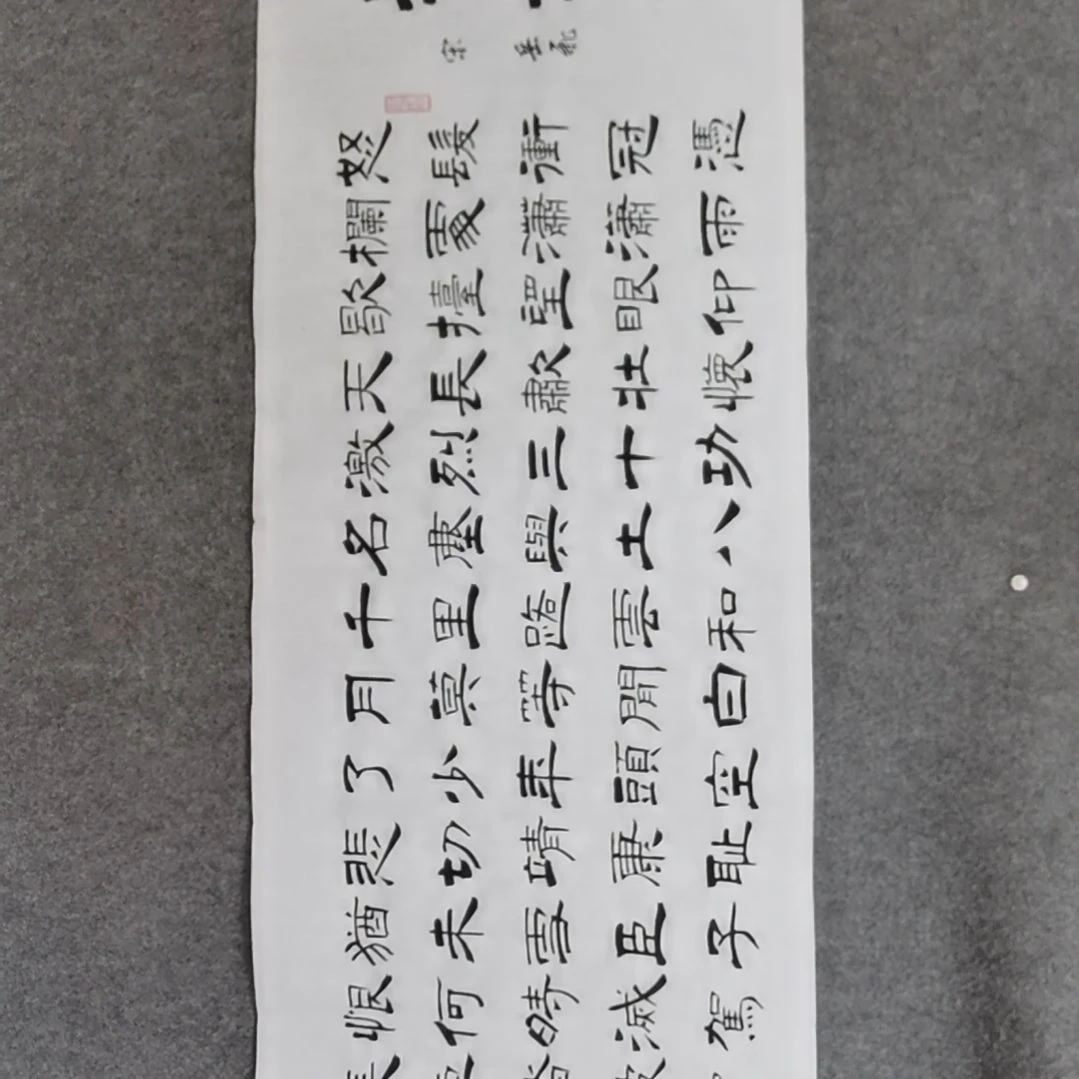 宋 岳飛
怒髮衝冠憑
欄處瀟瀟雨
歇擡望眼仰
天長嘯壯懷
激烈三十功
名塵與土八
千里路雲和
月莫等閒白
了少年頭空
悲切靖康耻
猶未雪臣子
恨何時滅駕